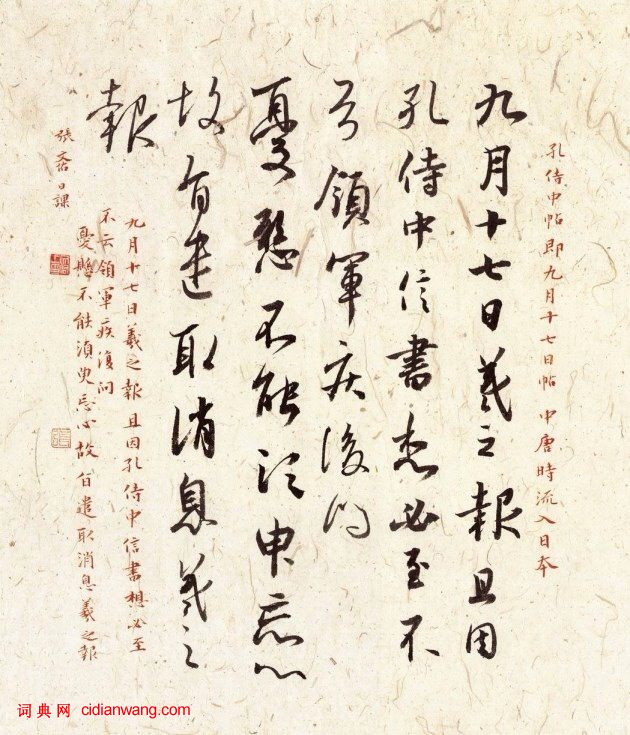 孔侍中帖即九月十七日帖 中唐時流入日本
九月十七日羲之報且因
孔侍中信書想必至不
云領軍疾後问
憂懸不能須臾忘心
故旨遣取消息羲之
報
九月十七日羲之報且因孔侍中信書想必至
不云領軍疾復问
憂懸不能湏臾忘心故旨遣取消息羲之報
張 日課
词典网 cidianwang.com